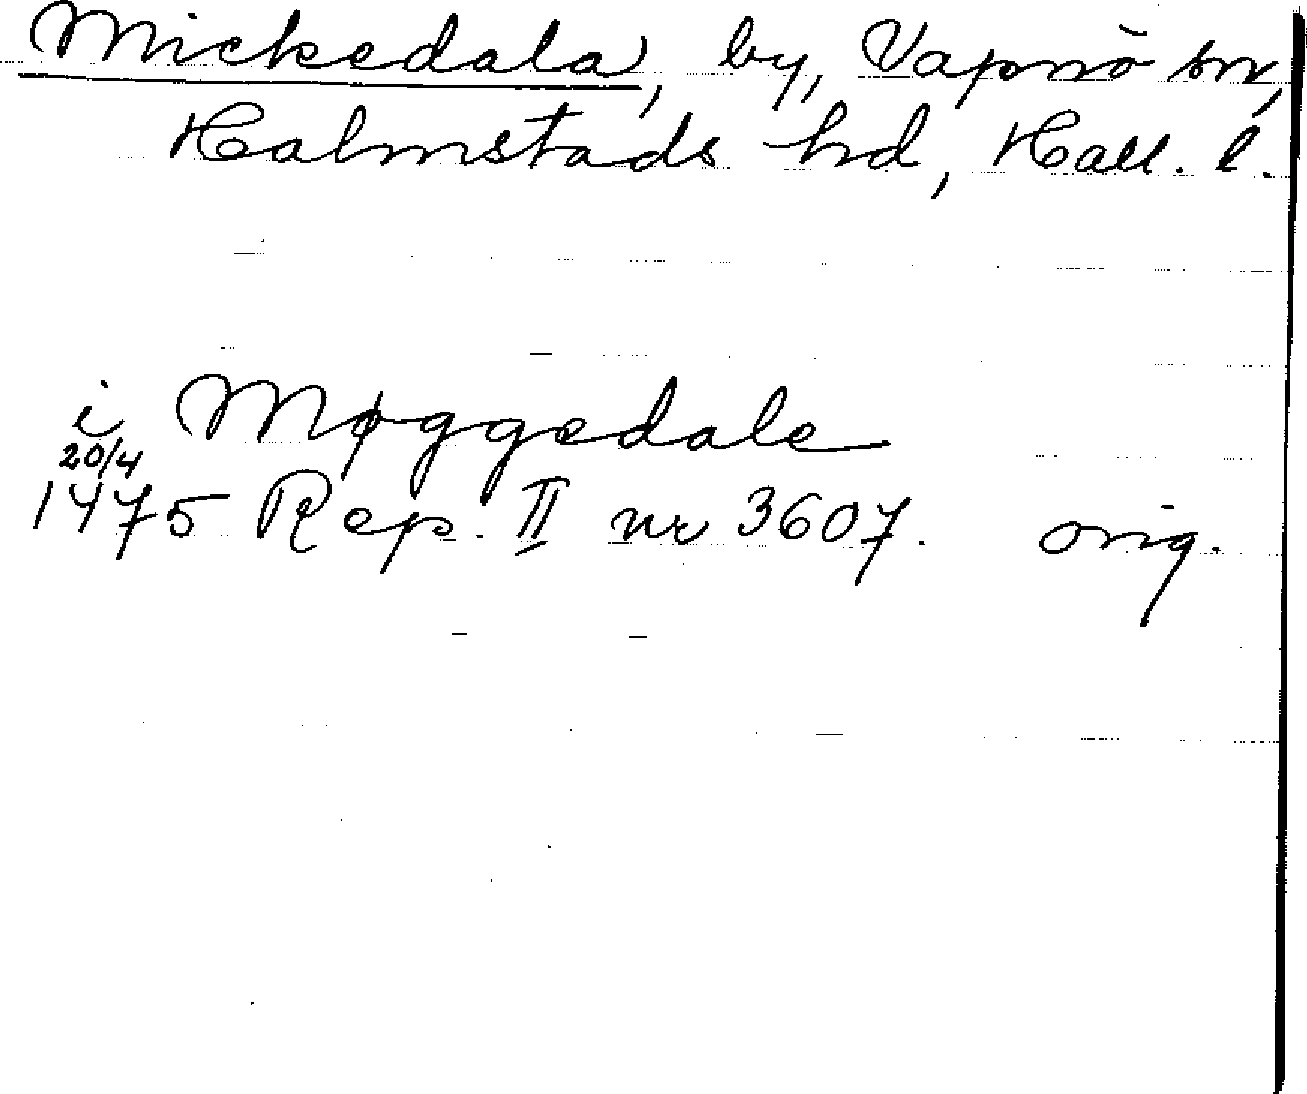 Mickedala, by, Vapnö sn,
Halmstads hd, Hall. l.
i Møggedale
20/4
1475 Rep. II nr 3607. orig.